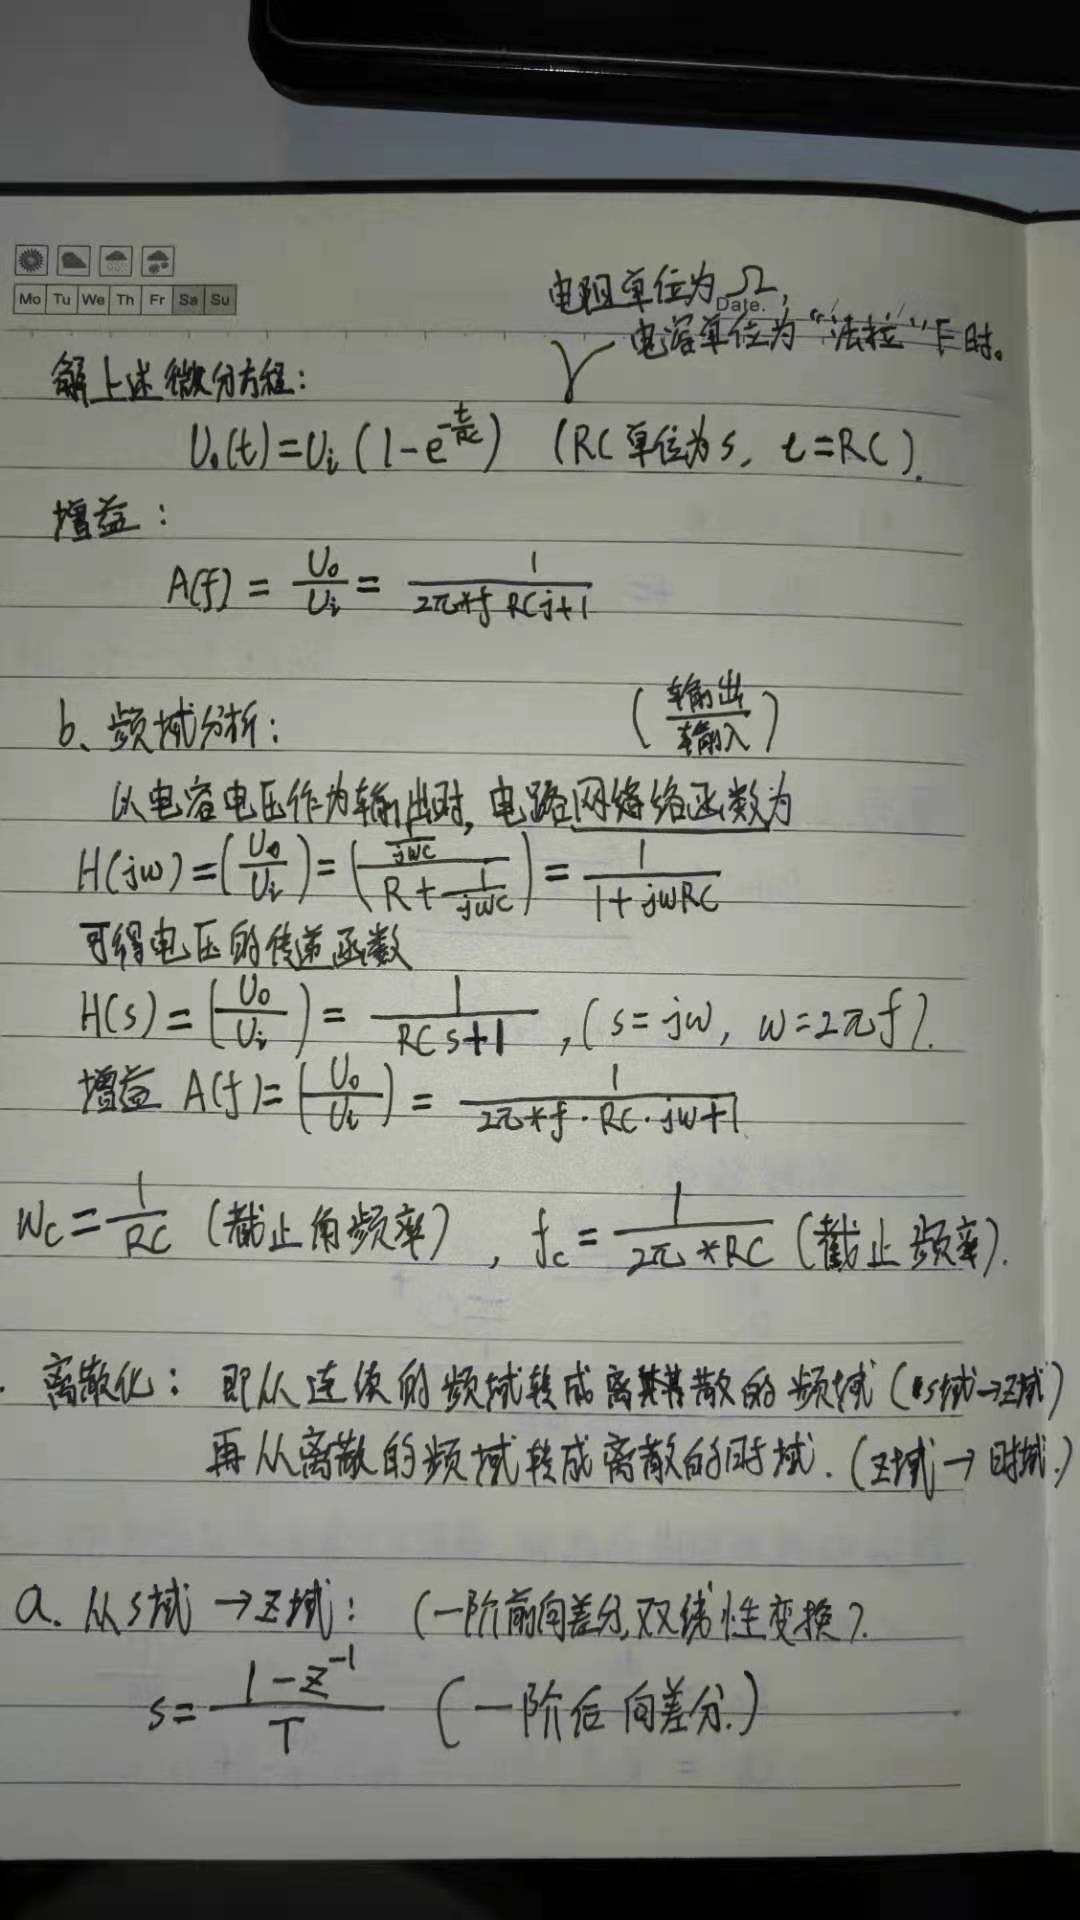 Mo Tu We Th Fr Sa Su
Date.
电阻单位为Ω,
电容单位为“法拉”F时。
解上述微分方程:
U₀(t)=Uᵢ(1-e^(-t/RC)) (RC单位为s, t=RC).
增益:
A(f) = U₀/Uᵢ = 1/(2π*f RCj+1)
b、频域分析: (输出/输入)
以电容电压作为输出时, 电路网络络函数为
H(jw)=(U₀/Uᵢ)=((1/jwc)/(R+1/jwc))=1/(1+jwRC)
可得电压的传递函数
H(s)=(U₀/Uᵢ)=1/(RCs+1),(s=jw, w=2πf).
增益 A(f)=(U₀/Uᵢ)=1/(2π*f·RC·jw+1)
Wc=1/RC (截止角频率), fc=1/(2π*RC) (截止频率).
. 离散化: 即从连续的频域转成离散的频域(s域→Z域)
再从离散的频域转成离散的时域.(Z域→时域.)
a. 从s域→Z域: (一阶前向差分,双线性变换).
s=(1-z⁻¹)/T (一阶后向差分.)